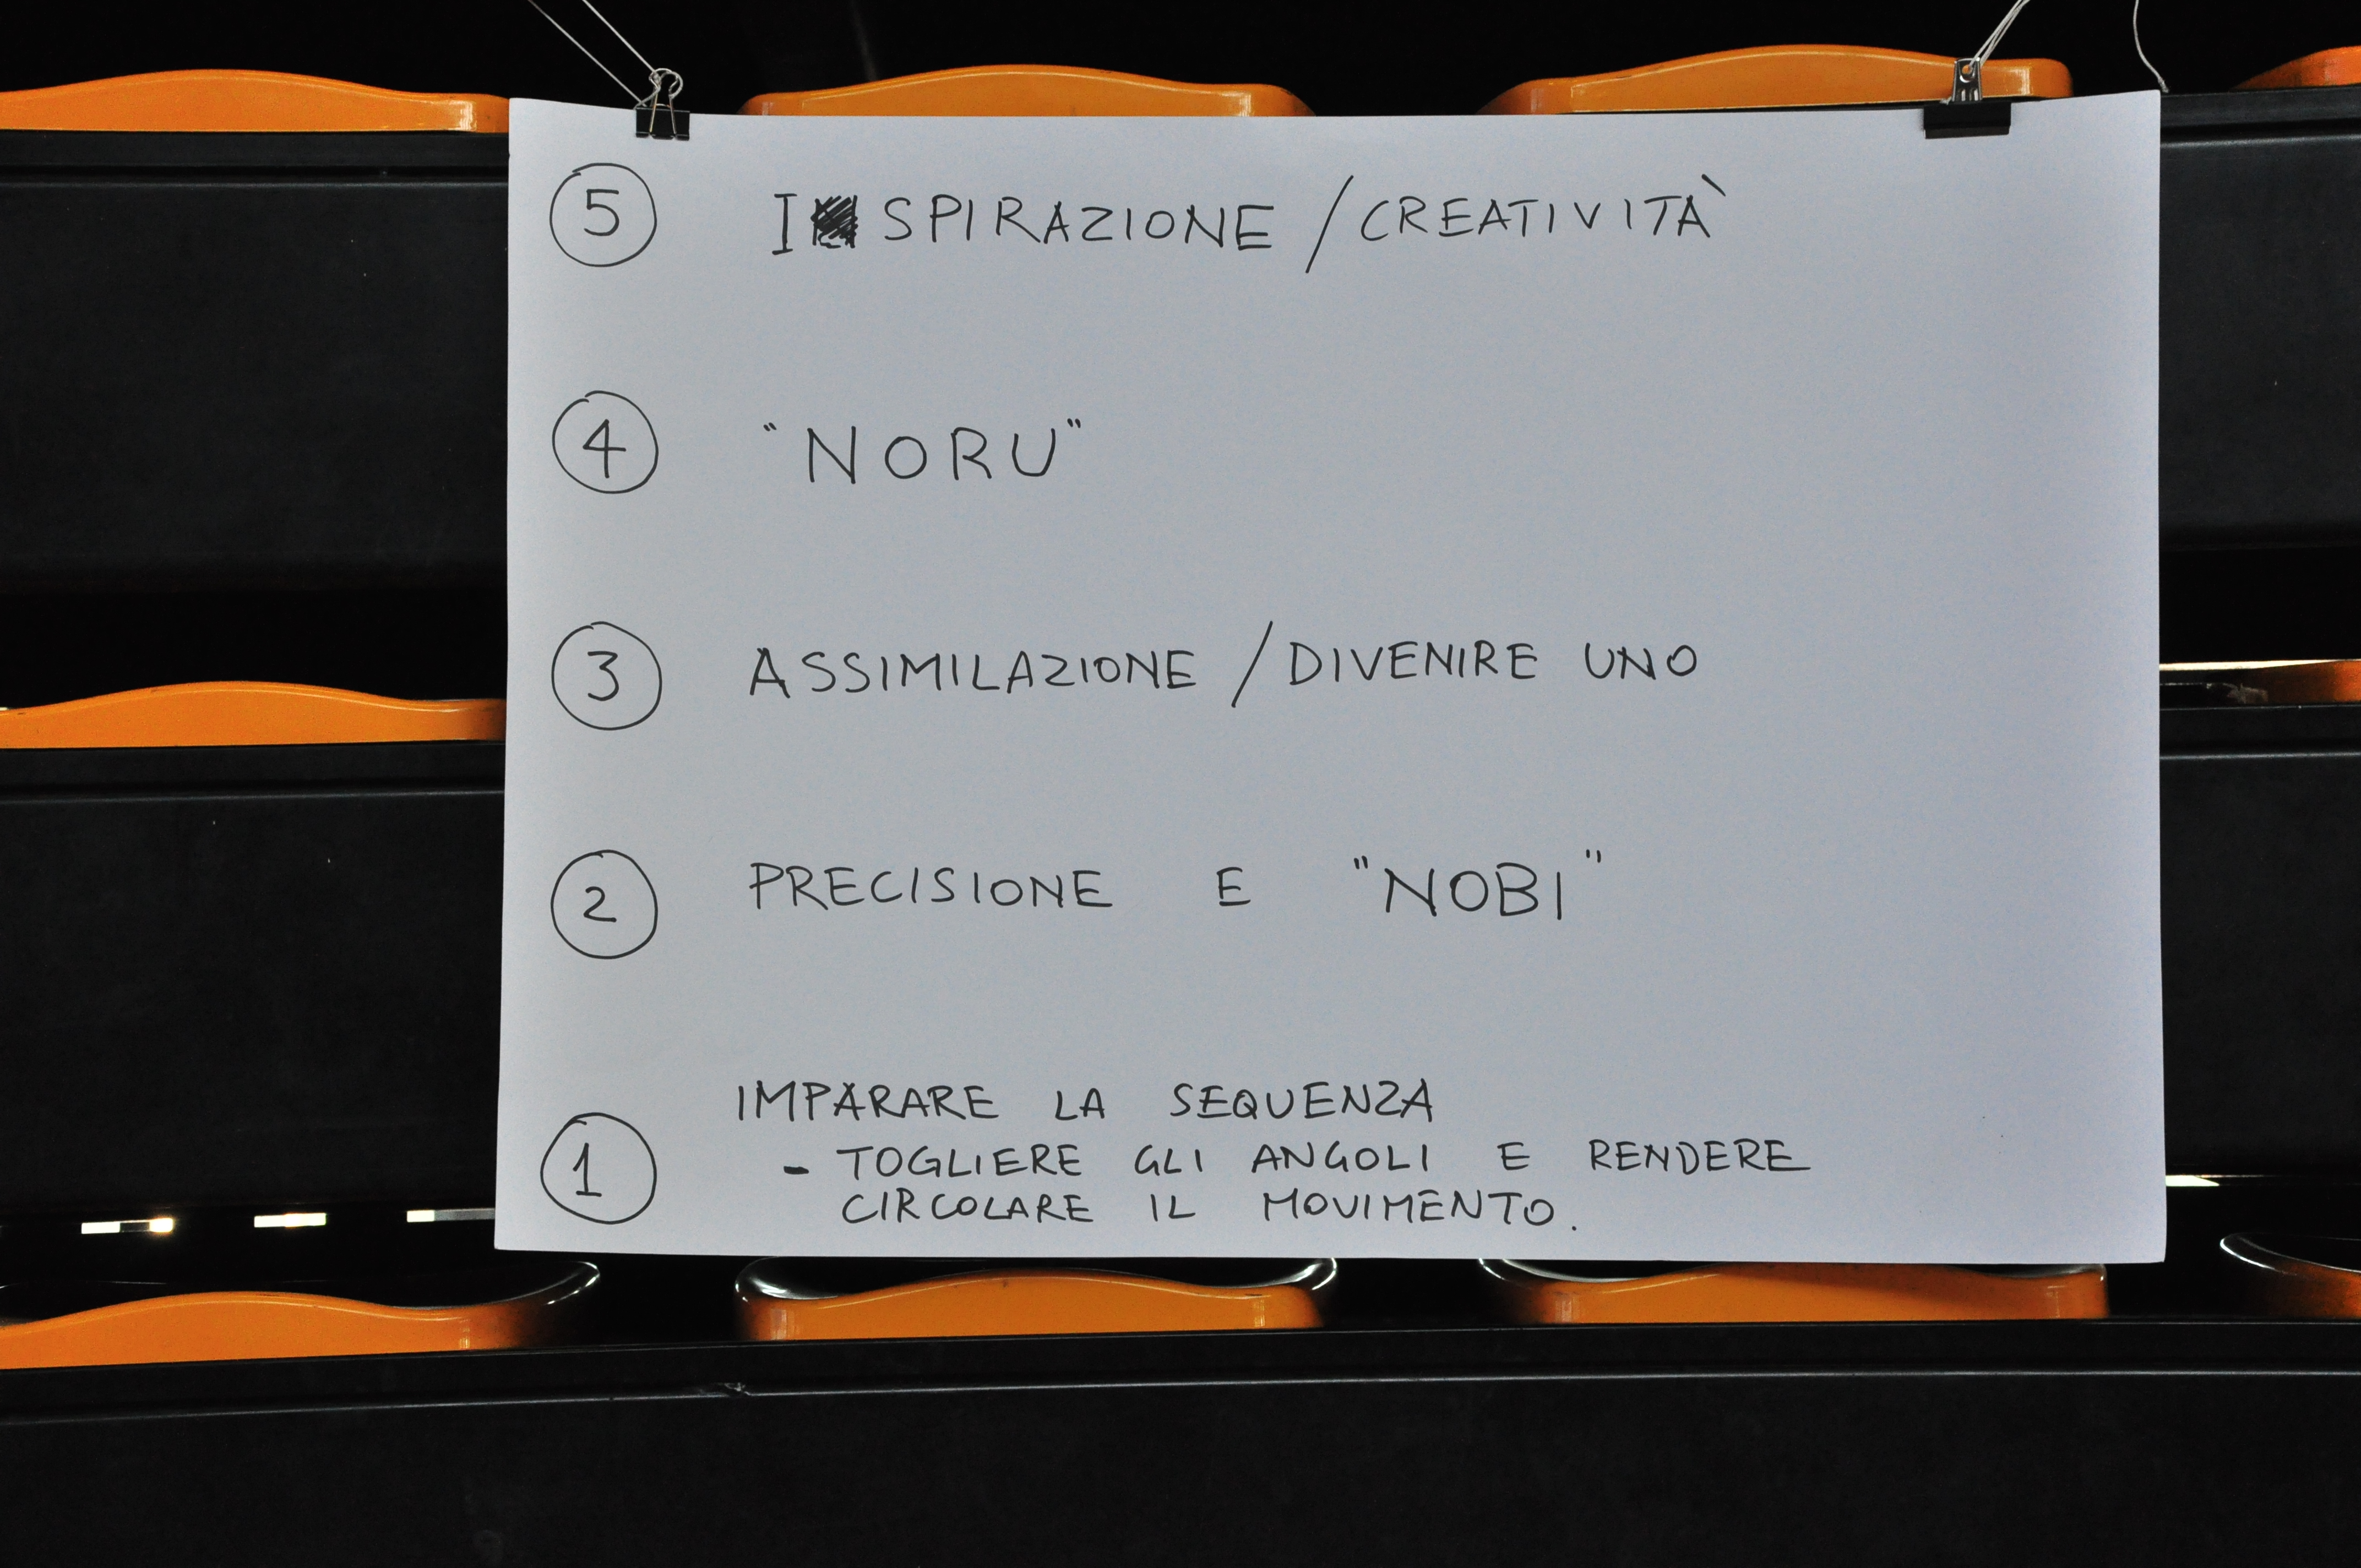 5 ISPIRAZIONE / CREATIVITÀ
4 "NORU"
3 ASSIMILAZIONE / DIVENIRE UNO
2 PRECISIONE E "NOBI"
IMPARARE LA SEQUENZA
1 - TOGLIERE GLI ANGOLI E RENDERE
CIRCOLARE IL MOVIMENTO.